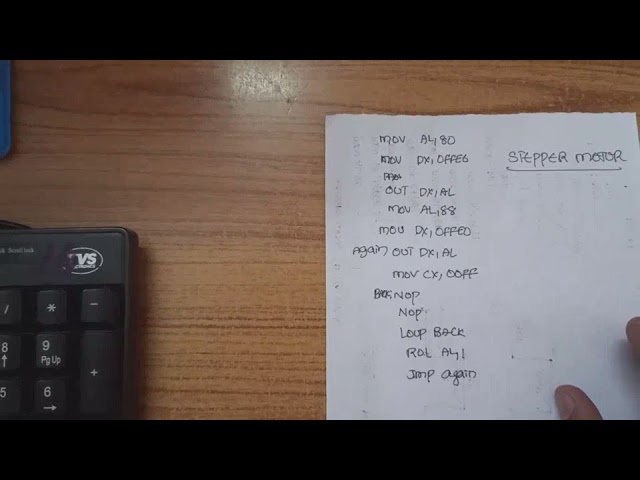 STEPPER MOTOR
MOV AL,80
MOV DX,0FFE6
OUT DX,AL
MOV AL,88
MOV DX,0FFE0
Again OUT DX,AL
MOV CX,00FF
NOP
NOP
LOOP BACK
ROL AL,1
JMP Again
TVS
Scroll Lock
/ * -
8 9 Pg Up +
5 6